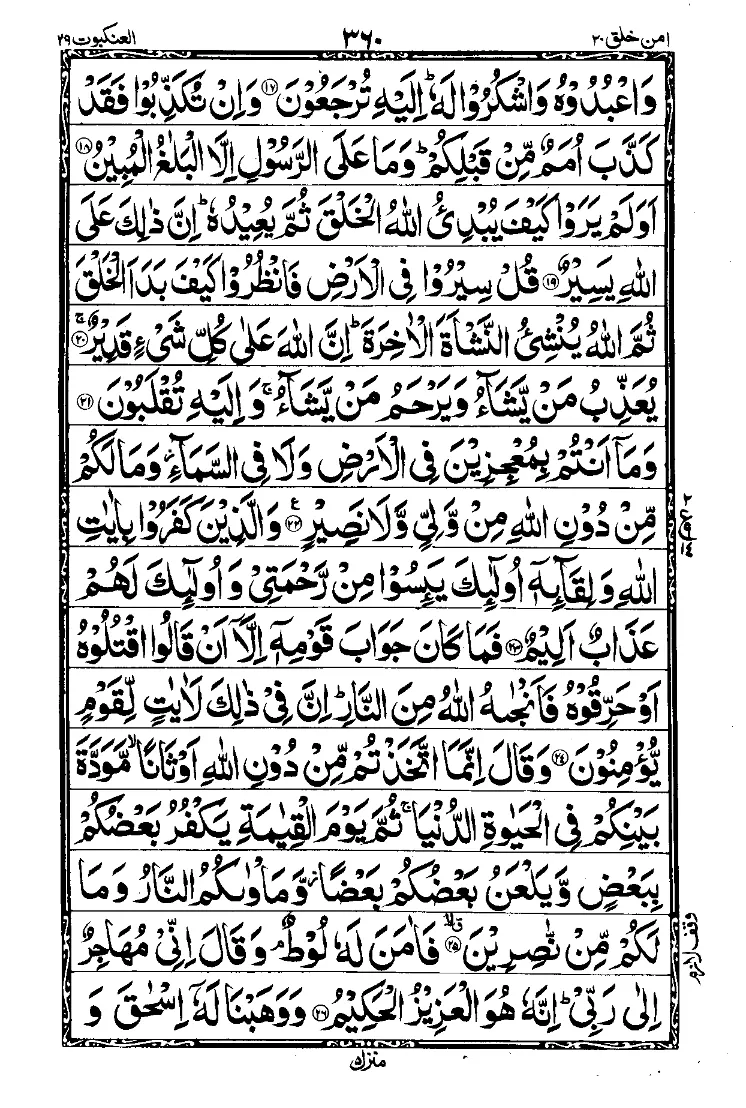 امن خلق ۲۰ ۳۶۰ العنكبوت ۲۹
وَاعْبُدُوْهُ وَاشْكُرُوْا لَهٗ ؕ اِلَيْهِ تُرْجَعُوْنَ ۝۱۷ وَاِنْ تُكَذِّبُوْا فَقَدْ
كَذَّبَ اُمَمٌ مِّنْ قَبْلِكُمْ ؕ وَمَا عَلَى الرَّسُوْلِ اِلَّا الْبَلٰغُ الْمُبِيْنُ ۝۱۸
اَوَلَمْ يَرَوْا كَيْفَ يُبْدِئُ اللّٰهُ الْخَلْقَ ثُمَّ يُعِيْدُهٗ ؕ اِنَّ ذٰلِكَ عَلَى
اللّٰهِ يَسِيْرٌ ۝۱۹ قُلْ سِيْرُوْا فِي الْاَرْضِ فَانْظُرُوْا كَيْفَ بَدَاَ الْخَلْقَ
ثُمَّ اللّٰهُ يُنْشِئُ النَّشْاَةَ الْاٰخِرَةَ ؕ اِنَّ اللّٰهَ عَلٰى كُلِّ شَيْءٍ قَدِيْرٌ ۝۲۰ۚ
يُعَذِّبُ مَنْ يَّشَآءُ وَيَرْحَمُ مَنْ يَّشَآءُ ۚ وَاِلَيْهِ تُقْلَبُوْنَ ۝۲۱
وَمَآ اَنْتُمْ بِمُعْجِزِيْنَ فِي الْاَرْضِ وَلَا فِي السَّمَآءِ ؗ وَمَا لَكُمْ
مِّنْ دُوْنِ اللّٰهِ مِنْ وَّلِيٍّ وَّلَا نَصِيْرٍ ۝۲۲ع وَالَّذِيْنَ كَفَرُوْا بِاٰيٰتِ
اللّٰهِ وَلِقَآئِهٖٓ اُولٰٓئِكَ يَئِسُوْا مِنْ رَّحْمَتِيْ وَاُولٰٓئِكَ لَهُمْ
عَذَابٌ اَلِيْمٌ ۝۲۳ فَمَا كَانَ جَوَابَ قَوْمِهٖٓ اِلَّآ اَنْ قَالُوا اقْتُلُوْهُ
اَوْ حَرِّقُوْهُ فَاَنْجٰىهُ اللّٰهُ مِنَ النَّارِ ؕ اِنَّ فِيْ ذٰلِكَ لَاٰيٰتٍ لِّقَوْمٍ
يُّؤْمِنُوْنَ ۝۲۴ وَقَالَ اِنَّمَا اتَّخَذْتُمْ مِّنْ دُوْنِ اللّٰهِ اَوْثَانًا ۙ مَّوَدَّةَ
بَيْنِكُمْ فِي الْحَيٰوةِ الدُّنْيَا ۚ ثُمَّ يَوْمَ الْقِيٰمَةِ يَكْفُرُ بَعْضُكُمْ
بِبَعْضٍ وَّيَلْعَنُ بَعْضُكُمْ بَعْضًا ؗ وَّمَاْوٰىكُمُ النَّارُ وَمَا
لَكُمْ مِّنْ نّٰصِرِيْنَ ۝۲۵ فَاٰمَنَ لَهٗ لُوْطٌ ۘ وَقَالَ اِنِّيْ مُهَاجِرٌ
اِلٰى رَبِّيْ ؕ اِنَّهٗ هُوَ الْعَزِيْزُ الْحَكِيْمُ ۝۲۶ وَوَهَبْنَا لَهٗٓ اِسْحٰقَ وَ
وقف لازم